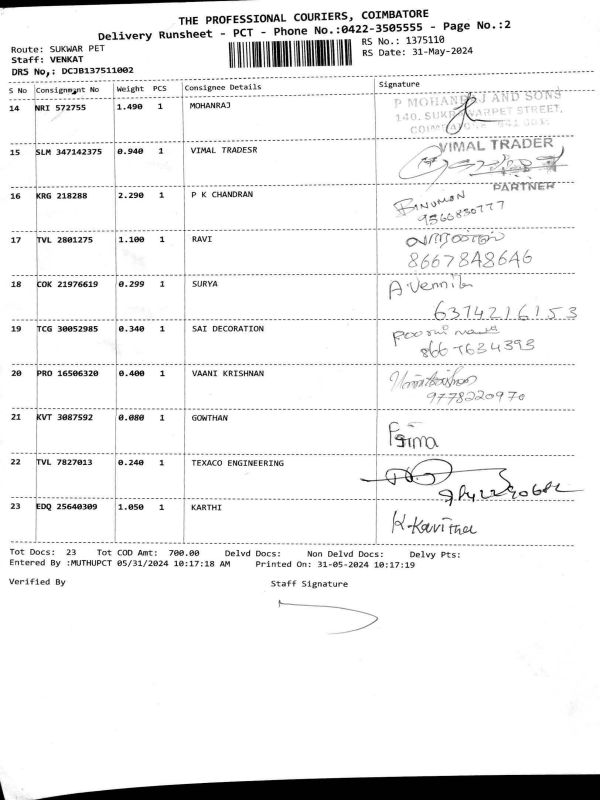 THE PROFESSIONAL COURIERS, COIMBATORE
Delivery Runsheet - PCT - Phone No.:0422-3505555 - Page No.:2
Route: SUKWAR PET RS No.: 1375110
Staff: VENKAT RS Date: 31-May-2024
DRS No,: DCJB137511002
S No Consignment No Weight PCS Consignee Details Signature
14 NRI 572755 1.490 1 MOHANRAJ
P MOHANRAJ AND SONS
140, SUKRAWARPET STREET,
15 SLM 347142375 0.940 1 VIMAL TRADESR
VIMAL TRADER
PARTNER
16 KRG 218288 2.290 1 P K CHANDRAN
BINUMON
9566830777
17 TVL 2801275 1.100 1 RAVI
8667848646
18 COK 21976619 0.299 1 SURYA
A. Vennila
6374216153
19 TCG 30052985 0.340 1 SAI DECORATION
8667634393
20 PRO 16506320 0.400 1 VAANI KRISHNAN
9778220970
21 KVT 3087592 0.080 1 GOWTHAN
22 TVL 7827013 0.240 1 TEXACO ENGINEERING
23 EDQ 25640309 1.050 1 KARTHI
K-Kavitha
Tot Docs: 23 Tot COD Amt: 700.00 Delvd Docs: Non Delvd Docs: Delvy Pts:
Entered By :MUTHUPCT 05/31/2024 10:17:18 AM Printed On: 31-05-2024 10:17:19
Verified By Staff Signature